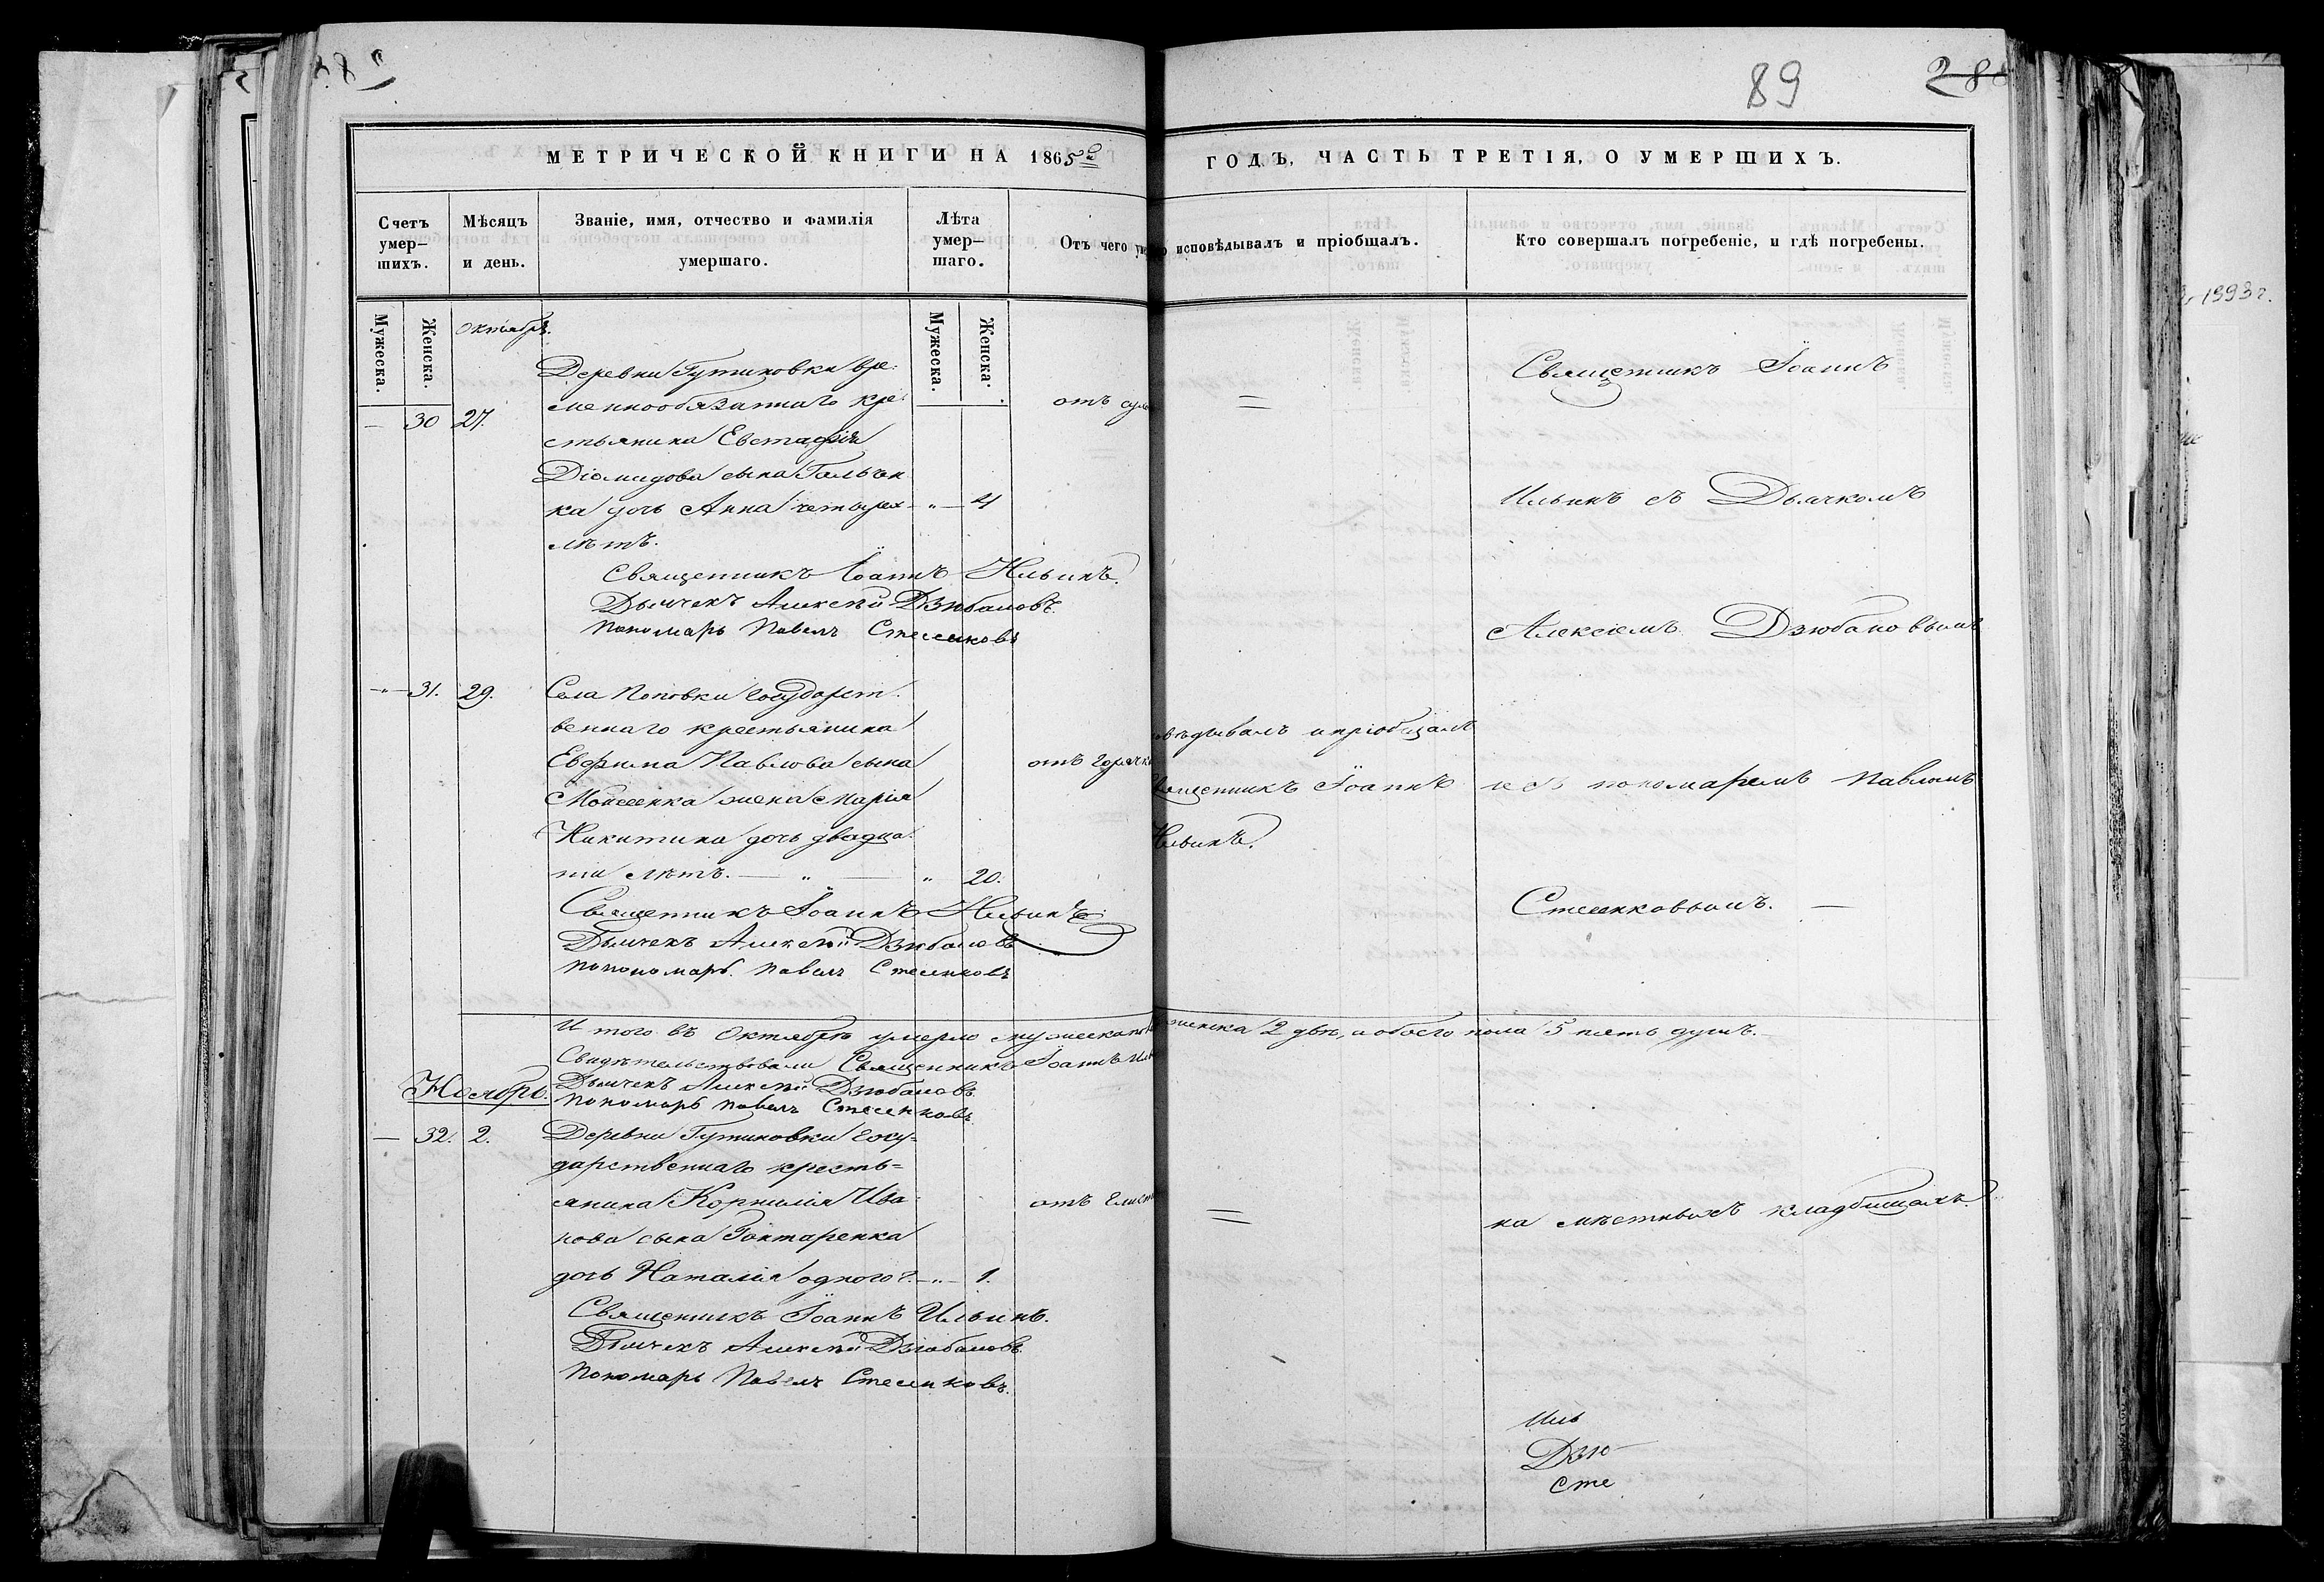 89
МЕТРИЧЕСКОЙ КНИГИ НА 1865й ГОДЪ, ЧАСТЬ ТРЕТІЯ, О УМЕРШИХЪ.
Счетъ умер-шихъ.
Мѣсяцъ и день.
Званіе, имя, отчество и фамилія умершаго.
Лѣта умер-шаго.
Отъ чего
исповѣдывалъ и пріобщалъ.
Кто совершалъ погребеніе, и гдѣ погребены.
Мужеска.
Женска.
Мужеска.
Женска.
Октябрь.
30 27.
Деревни Гутиновки вре-
меннообязаннаго кре-
стьянина Евстафія
Діомидова сына
ка дочь Анна четырех
лѣтъ.
" 4
отъ
=
Священникъ Іоаннъ Ильинъ.
Дьячекъ Алексѣй Дзюбановъ
Пономарь Павелъ Стесенковъ
" 31. 29.
Села Поповки государст-
веннаго крестьянина
Евфима Павлова сына
Мойсенка жена Марія
Никитина дочь двадца-
ти лѣтъ. — " —
" 20.
отъ горячк
вѣдывалъ и пріобщалъ
Священникъ Іоаннъ
Ильинъ.
Священникъ Іоаннъ Ильинъ
Дьячекъ Алексѣй Дзюбановъ
Пономарь Павелъ Стесенковъ
Итого въ Октябрѣ умерло мужеска
женска 2 двѣ, а обоего пола 5 пять душъ.
Свидѣтельствовали Священникъ Іоаннъ Иль
Дьячекъ Алексѣй Дзюбановъ
Пономарь Павелъ Стесенковъ
Ноябрь.
32. 2.
Деревни Гутиновки госу-
дарственнаго кресть-
янина Корнилія Ива-
нова сына Гонтаренка
дочь Наталія одного г.
" 1.
отъ
=
Священникъ Іоаннъ Ильинъ.
Дьячекъ Алексѣй Дзюбановъ
Пономарь Павелъ Стесенковъ.
Священникъ Іоаннъ
Ильинъ съ Дьячкомъ
Алексіемъ Дзюбановымъ
и съ пономаремъ Павломъ
Стесенковымъ. —
на мѣстныхъ кладбищахъ.
Иль
Дзю-
Сте
1993 г.